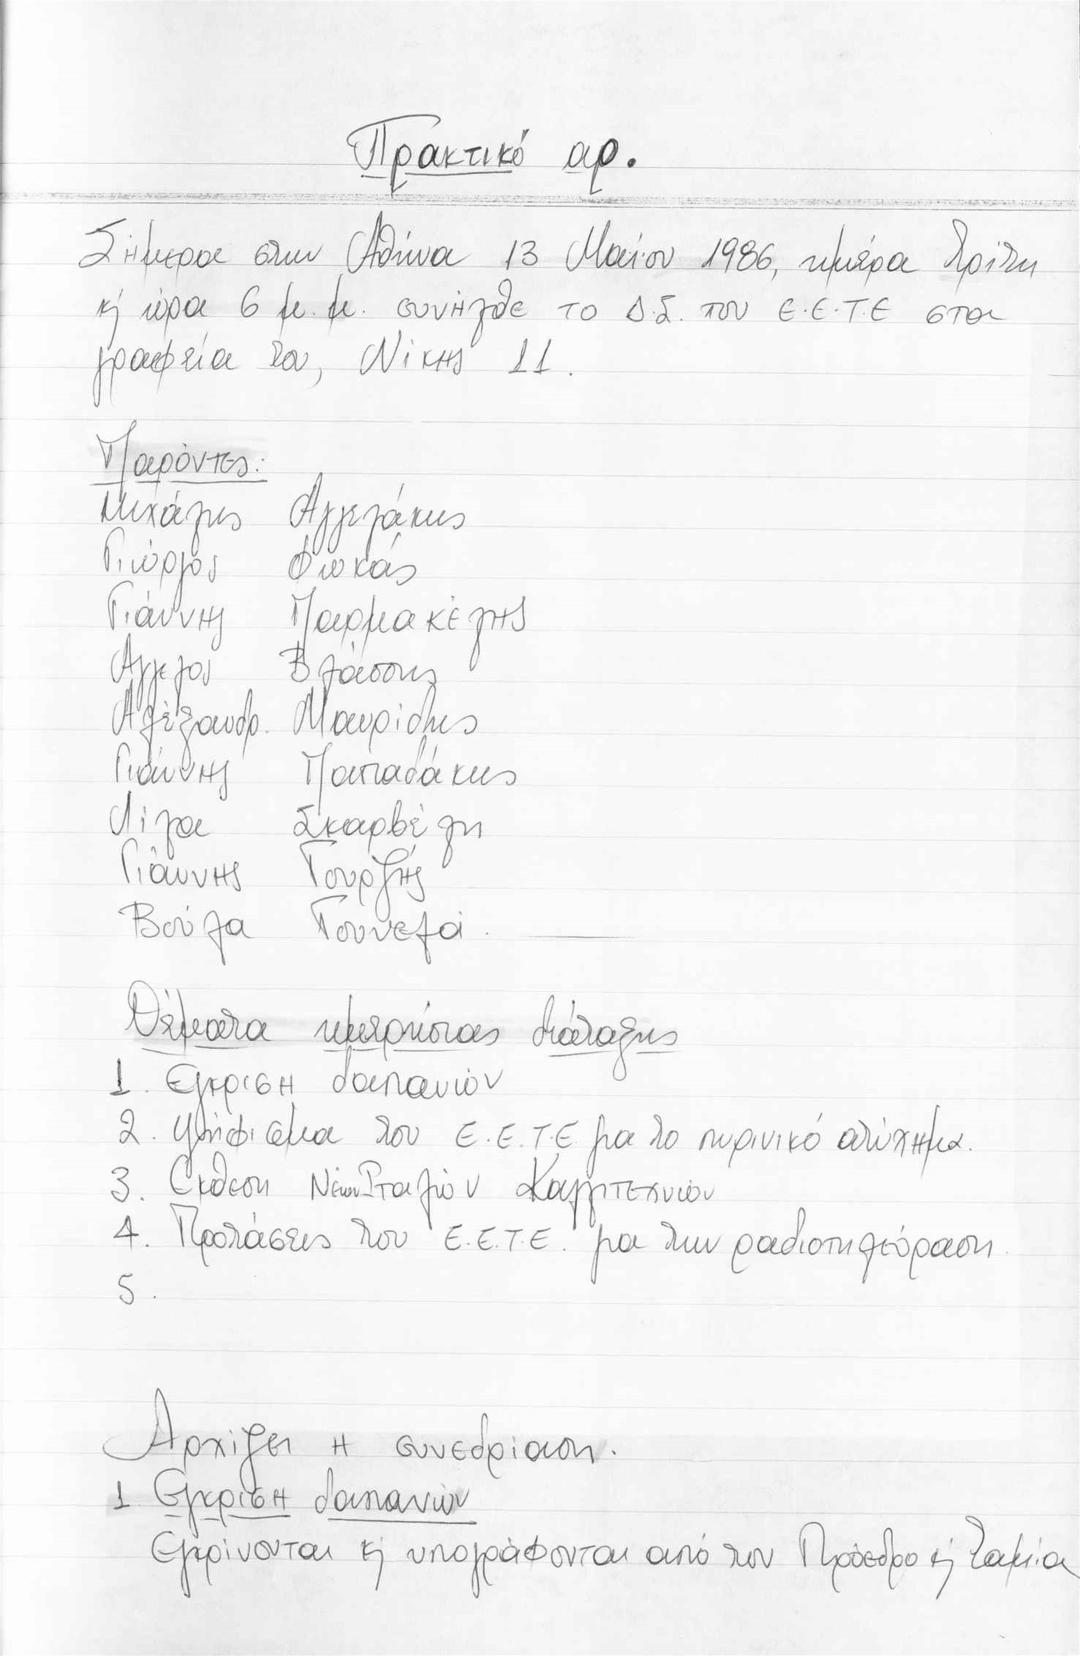 Πρακτικό αρ.
Σήμερα στην Αθήνα 13 Μαΐου 1986, ημέρα Τρίτη
κ) ώρα 6 μ.μ. συνήλθε το Δ.Σ. του Ε.Ε.Τ.Ε στα
γραφεία του, Νίκης 11.
Παρόντες:
Μιχάλης Αγγελάκης
Γιώργος Φωκάς
Γιάννης Παρμακέλης
Άγγελος Βλάσσης
Αλέξανδρ. Μαυρίδης
Γιάννης Παπαδάκης
Λίλα Σκαρβέλη
Γιάννης Γουρζής
Βούλα Γουνελά.
Θέματα ημερησίας διάταξης
1. Έγκριση δαπανών
2. Ψήφισμα του Ε.Ε.Τ.Ε για το πυρινικό ατύχημα.
3. Έκθεση Νέων Ιταλών Καλλιτεχνών
4. Προτάσεις του Ε.Ε.Τ.Ε. για την ραδιοτηλεόραση.
5.
Αρχίζει η συνεδρίαση.
1 Έγκριση δαπανών
Εγκρίνονται κ) υπογράφονται από τον Πρόεδρο κ) Ταμία